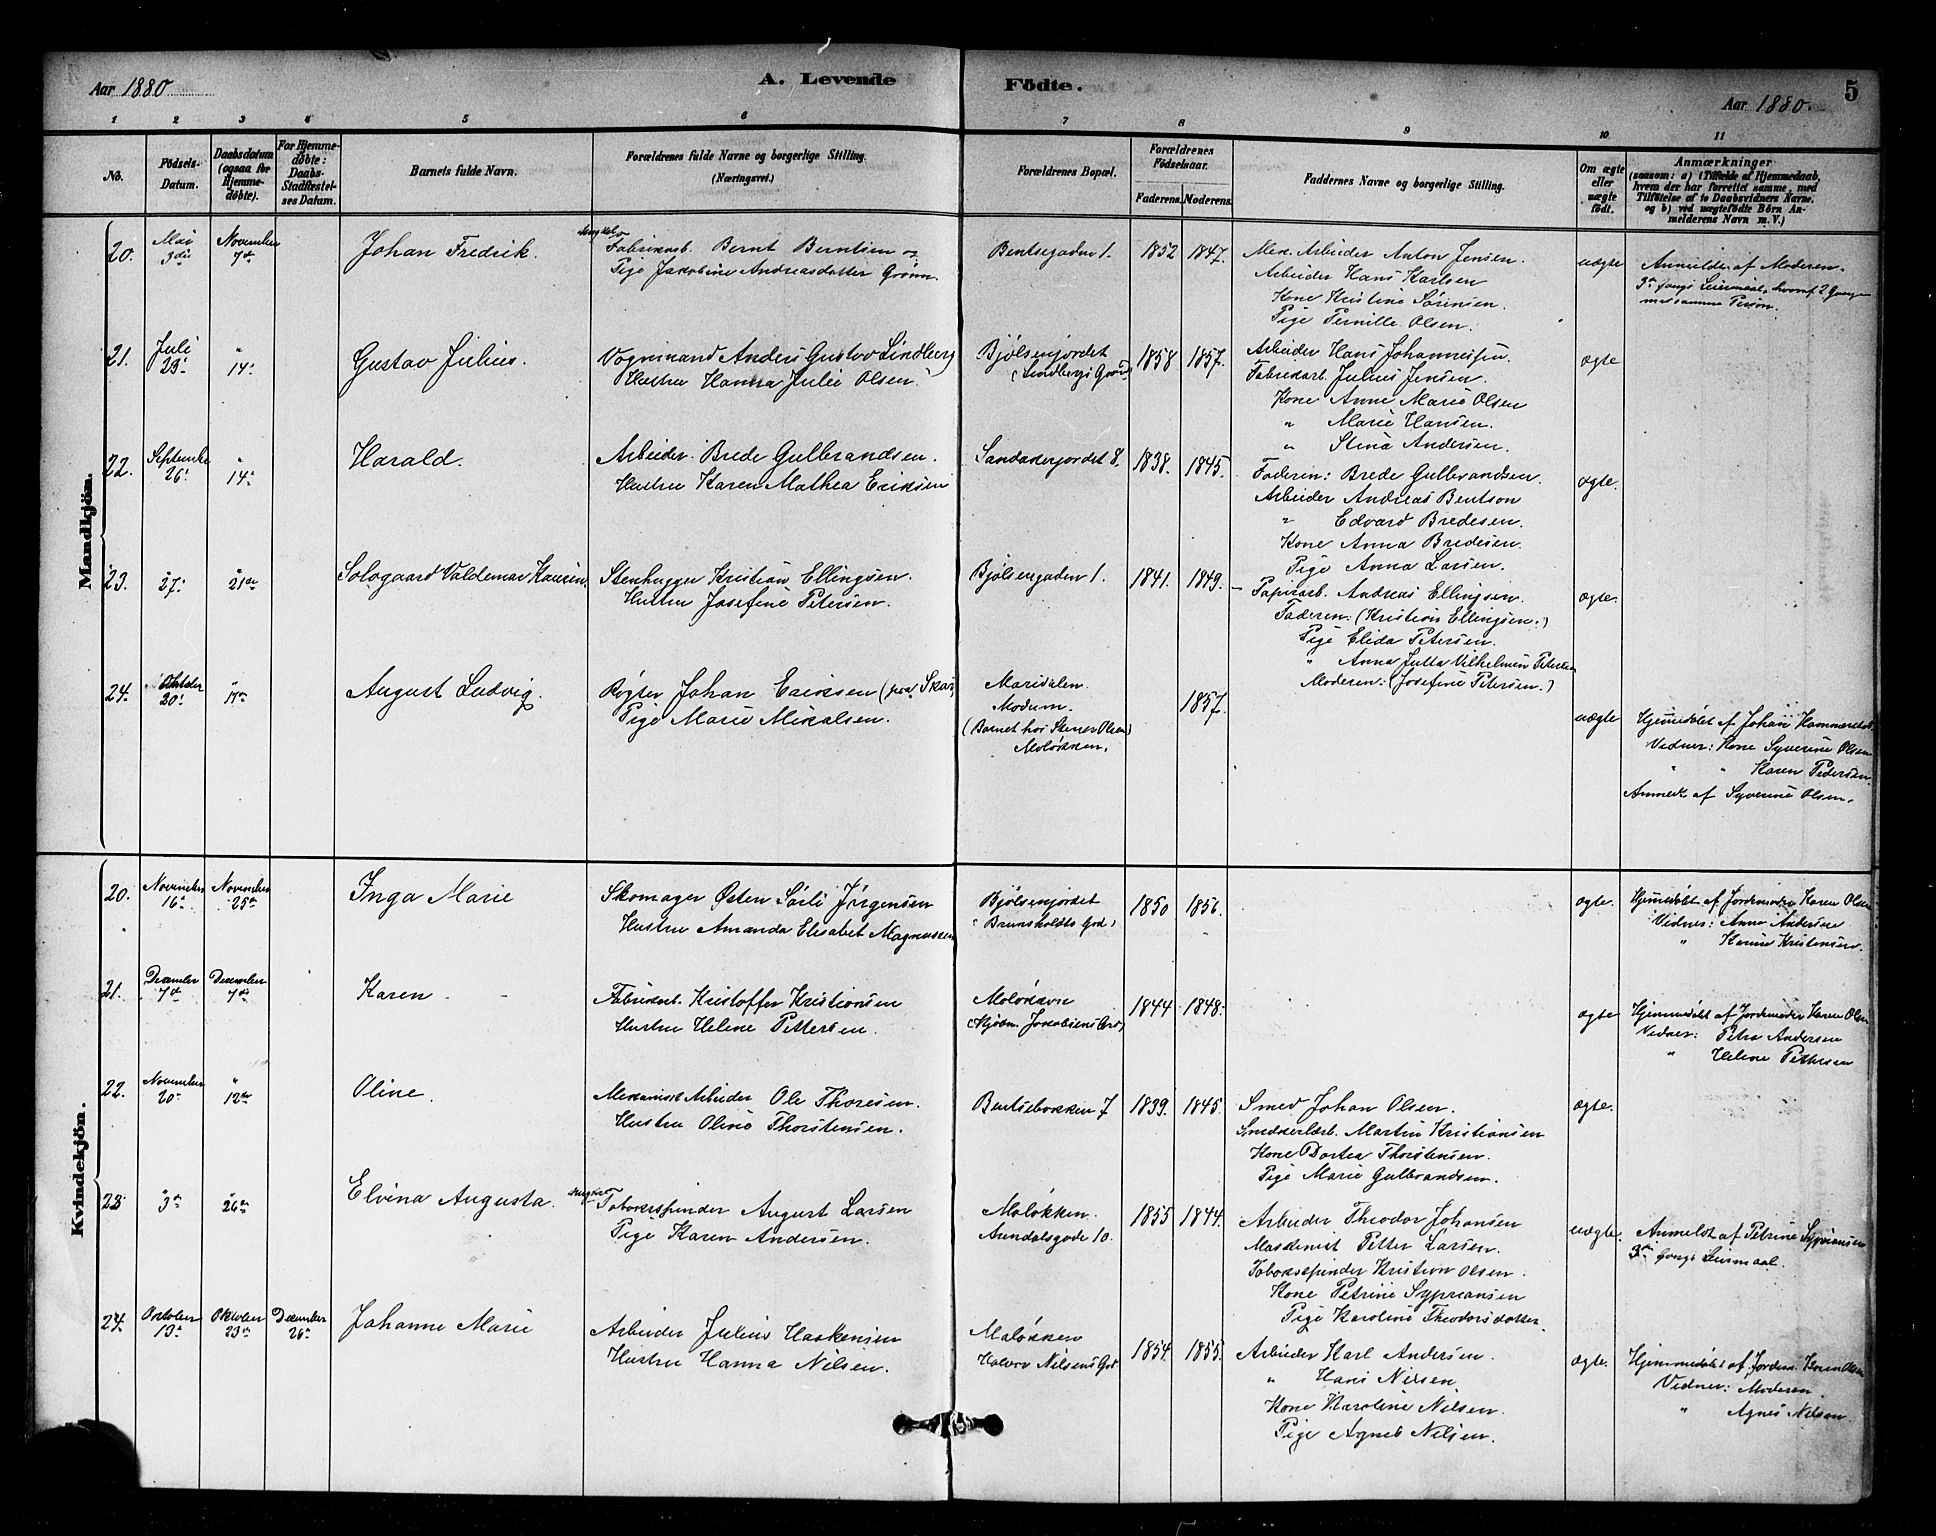 Aar 1880
A. Levende Födte.
Aar 1880.
5
1 2 3 4 5 6 7 8 9 10 11
No.
Födsels-Datum.
Daabsdatum (ogsaa for Hjemme-døbte).
For Hjemme-døbte: Daabs-Stadfæstel-ses Datum.
Barnets fulde Navn.
Forældrenes fulde Navne og borgerlige Stilling. (Næringsvei.)
Forældrenes Bopæl.
Forældrenes Födselsaar.
Faderens. Moderens.
Faddernes Navne og borgerlige Stilling.
Om ægte eller uægte födt.
Anmærkninger
(saasom: a) i Tilfælde af Hjemmedaab, hvem der har forrettet samme, med Tilføielse af to Daabsvidners Navne, og b) ved uægtefödte Börn An-melderens Navn m. V.)
Mandkjön.
20. Mai 3die November 7de
Johan Fredrik.
Ungkarl Fabrikarb. Bernt Berntsen og
Pige Jakobine Andreasdatter Grønn.
Bentsegaden 1.
1852 1847.
Mek. Arbeider Anton Jensen.
Arbeider Hans Karlsen
Kone Kristine Sörensen.
Pige Pernille Olsen.
uægte
Anmeldt af Moderen.
3die Gangs Leiermaal, hvoraf 2 Gange
med samme Person.
21. Juli 23de " 14de
Gustav Julius.
Vognmand Anders Gustav Lindberg
Hustru Hanna Julie Olsen.
Bjølsenjordet
(Lindbergs Gaard)
1858 1857.
Arbeider Hans Johannessen.
Fabrikarb. Julius Jensen.
Kone Anne Marie Olsen
" Marie Hansen.
" Stina Andersen.
ægte
22. September 26de " 14de
Harald.
Arbeider Brede Gulbrandsen.
Hustru Karen Mathea Eriksen
Sandakerjordet 8.
1838. 1845.
Faderen: Brede Gulbrandsen.
Arbeider Andreas Bentson
" Edvard Bredesen.
Kone Anna Bredesen.
Pige Anna Larsen.
ægte.
23. " 27de " 21de
Sologaard Valdemar Kaurin.
Stenhugger Kristian Ellingsen.
Hustru Josefine Petersen.
Bjølsengaden 1.
1841. 1849.
Papirarb. Andreas Ellingsen.
Faderen: (Kristian Ellingsen.)
Pige Elida Petersen.
" Anna Jutta Vilhelmine Petersen
Moderen: (Josefine Petersen.)
ægte.
24. Oktober 20de "
August Ludvig.
Røgter Johan Eriksen (paa Skar)
Pige Marie Mikalsen.
Maridalen.
Modum.
(Barnet hos Stener Olsen)
Moløkken.
1857.
uægte
Hjemmedøbt af Johan
Vidner: Kone Syverine Olsen
" " Karen Pedersen
Anmeldt af Syverine Olsen.
Kvindekjön.
20. November 16de November 25de
Inga Marie
Skomager Østen Sörli Jørgensen
Hustru Amanda Elisabet Magnussen
Bjølsenjordet
(Brunsholdts Grd.)
1850 1856.
ægte.
Hjemmedøbt af Jordemoder Karen Olsen
Vidner: Anna Andersen
" Karine Kristensen.
21. December 7de December 7de
Karen
Fabrikarb. Kristoffer Kristiansen
Hustru Helene Pettersen.
Moløkken
(Kjøbm. Jakobsens Grd)
1844 1848.
ægte
Hjemmedøbt af Jordemoder Karen Olsen
Vidner: Petra Andersen
" Helene Pettersen
22. November 20de " 12te
Oline.
Mekanisk Arbeider Ole Thoresen.
Hustru Oline Thorstensen.
Bentsebakken 7
1839. 1845.
Smed Johan Olsen.
Snedkerlærl. Martin Kristiansen
Kone Dortea Thorstensen.
Pige Marie Gulbrandsen.
ægte.
23 " 3de " 26de
Elvina Augusta.
Ungkarl Tobakspinder August Larsen
Pige Karen Andersen.
Moløkken.
Arendalsgade 10.
1855 1844.
Arbeider Theodor Johansen
Maskinist Petter Larsen.
Tobakspinder Kristian Olsen.
Kone Petrine Syprians​en
Pige Karoline Theodorsdatter.
uægte.
Anmeldt af Petrine Sypriansen
3die Gangs Leiermaal.
24. Oktober 13de Oktober 23de December 26de
Johanne Marie
Arbeider Julius Haakensen
Hustru Hanna Nilsen.
Moløkken
Halvor Nilsens Grd.
1854. 1855.
Arbeider Karl Andersen.
" Hans Nilsen
Kone Karoline Nilsen.
Pige Agnes Nilsen.
ægte.
Hjemmedøbt af Jordem. Karen Olsen
Vidner: Moderen.
" Agnes Nilsen.